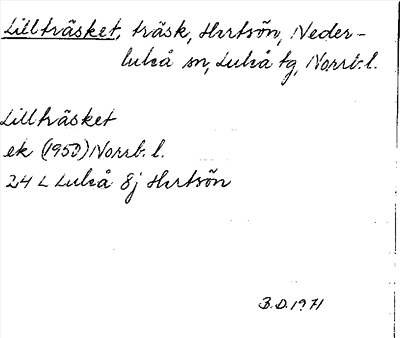 Lillträsket, träsk, Hertsön, Neder-
luleå sn, Luleå tg, Norrb. l.
Lillträsket
ek (1950) Norrb. l.
24 L Luleå 8j Hertsön
B.D. 1971